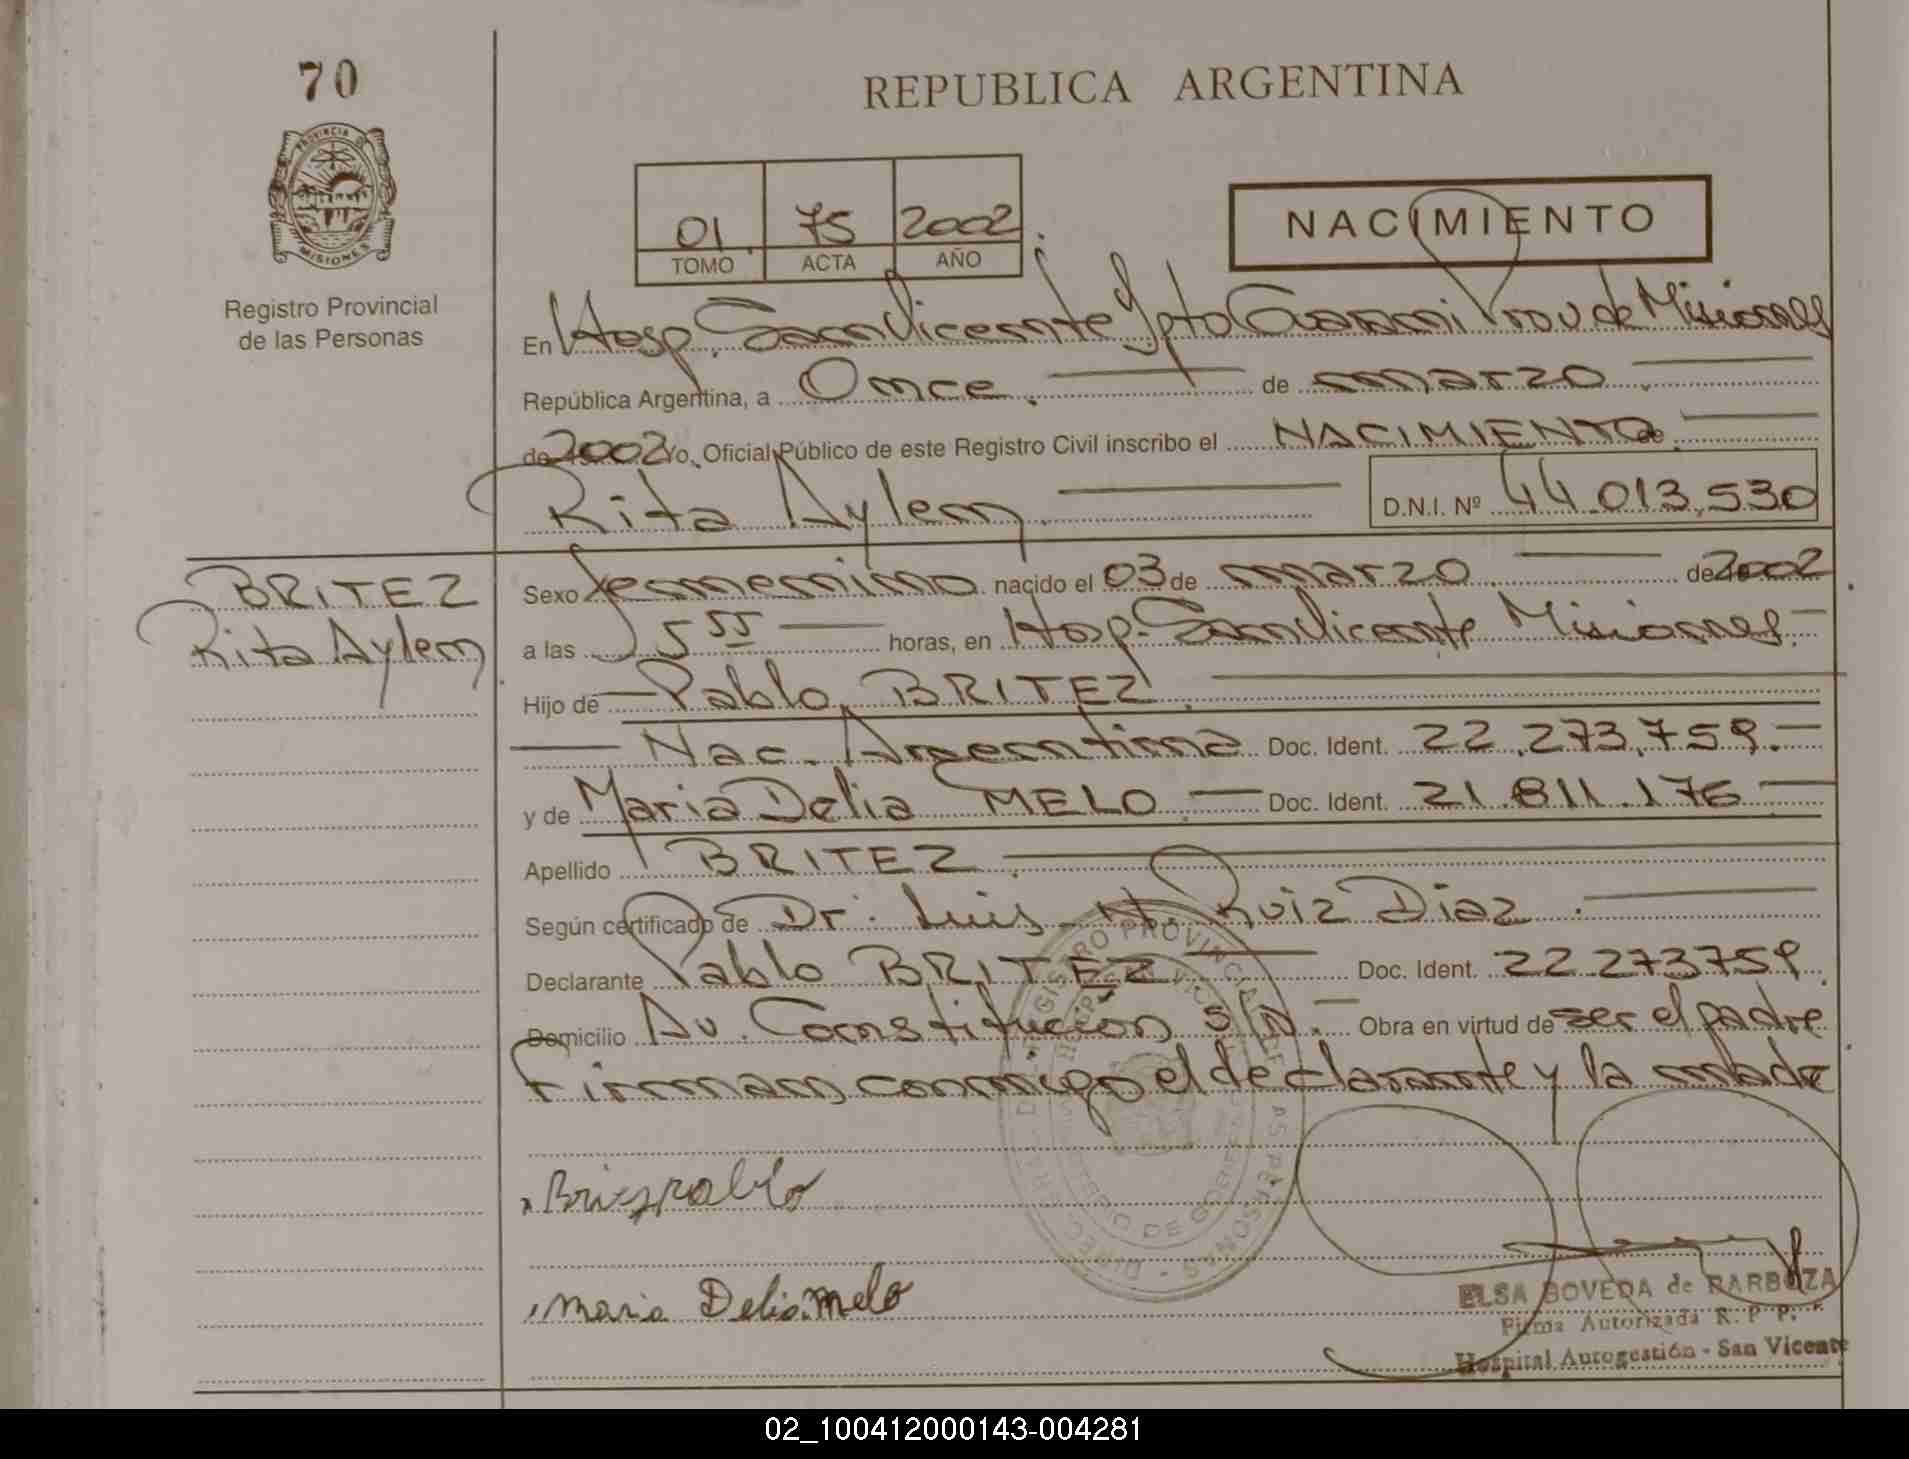 70
REPUBLICA ARGENTINA
PROVINCIA DE
MISIONES
Registro Provincial
de las Personas
01 75 2002
TOMO ACTA AÑO
NACIMIENTO
En Hosp. San Vicente Dpto Guarani Prov de Misiones
República Argentina, a Once de marzo
de 2002 Yo, Oficial Público de este Registro Civil inscribo el NACIMIENTO de
Rita Aylen D.N.I. Nº 44.013.530
BRITEZ
Rita Aylen
Sexo femenino nacido el 03 de marzo de 2002
a las 5 55 horas, en Hosp. San Vicente Misiones.
Hijo de Pablo BRITEZ
Nac. Argentina Doc. Ident. 22.273.759.
y de Maria Delia MELO Doc. Ident. 21.811.176
Apellido BRITEZ
Según certificado de Dr. Luis H. Ruiz Diaz
Declarante Pablo BRITEZ Doc. Ident. 22 273759
Domicilio Av. Constitución S/N. Obra en virtud de ser el padre
Firman conmigo el declarante y la madre
Maria Delia melo
ELSA BOVEDA de BARBOZA
Firma Autorizada R. P. P.
Hospital Autogestión - San Vicente
02_100412000143-004281